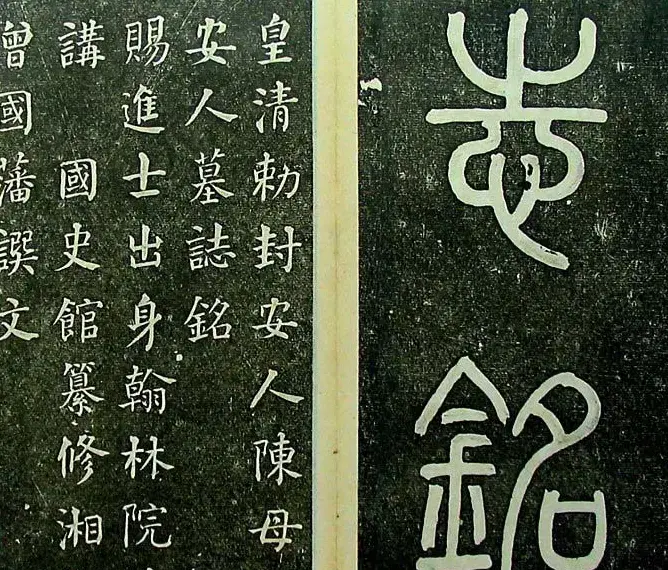 志銘
皇清勅封安人陳母
安人墓誌銘
賜進士出身翰林院
講國史館纂修湘
曾國藩譔文